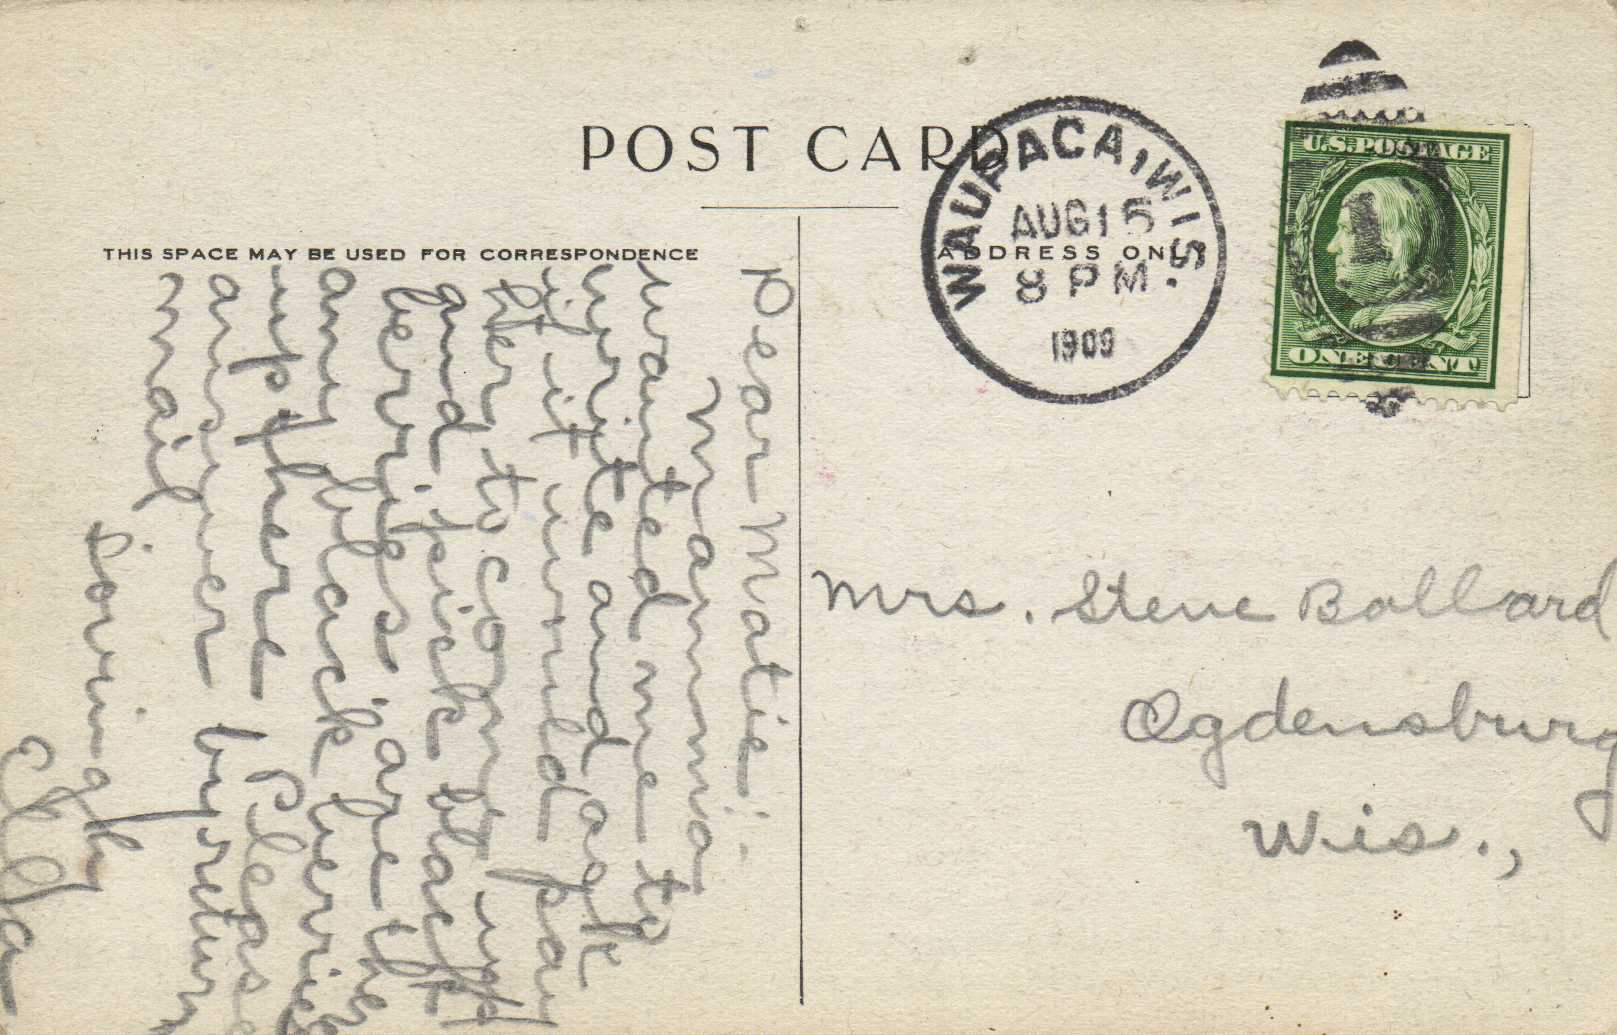 POST CARD
THIS SPACE MAY BE USED FOR CORRESPONDENCE
ADDRESS ONLY
WAUPACA, WIS.
AUG 15
8 PM
1909
U.S. POSTAGE
1
ONE CENT
Dear Matie:-
Mamma
wanted me to
write and ask
if it would pay
her to come up
and pick black
berries, are the
any black berries
up there Please
answer by return
mail
Lovingly
Ella
Mrs. Steve Ballard
Ogdensburg
Wis.,